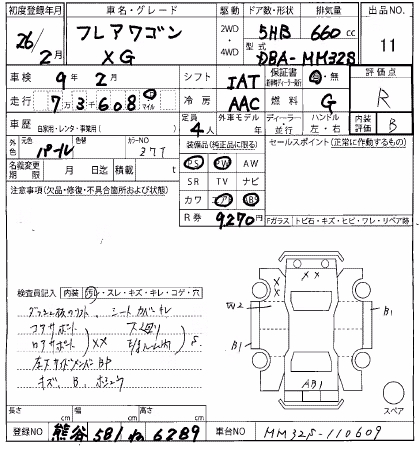 初度登録年月 車名・グレード 駆動 ドア数・形状 排気量 出品NO
26/2月 フレアワゴン XG 2WD・4WD 5HB 660cc 11
型式 DBA-MM32S
車検 9年2月 シフト IAT 保証書 有・無 評価点
走行 7万3千608 マイル 冷房 AAC 燃料 G R
車歴 自家用・レンタ・事業用( ) 定員 4人 外車モデル 年 ディーラー・並行 ハンドル 左・右 内装評価 B
外色 元色 パール 色替 カラーNO 277
装備品(純正品に限る) セールスポイント(正常に作動するもの)
名義変更期限 月 日迄 積載 t
PS PW AW
SR TV ナビ
カワ エアB ABS
注意事項(欠品・修復・不具合箇所および状態)
R券 9,270円
Fガラス トビ石・キズ・ヒビ・ワレ・リペア跡
検査員記入 内装 汚レ・スレ・キズ・キレ・コゲ・穴
シートカバーキレ
コアサポート
ロアサポート XX S
左フサイドメンバーBP
キズ B
XX
X
X
W2
B1
B1
AB1
スペア
長さ cm 幅 cm 高さ cm
登録NO 熊谷 581 ね 6289 車台NO MM32S-110609